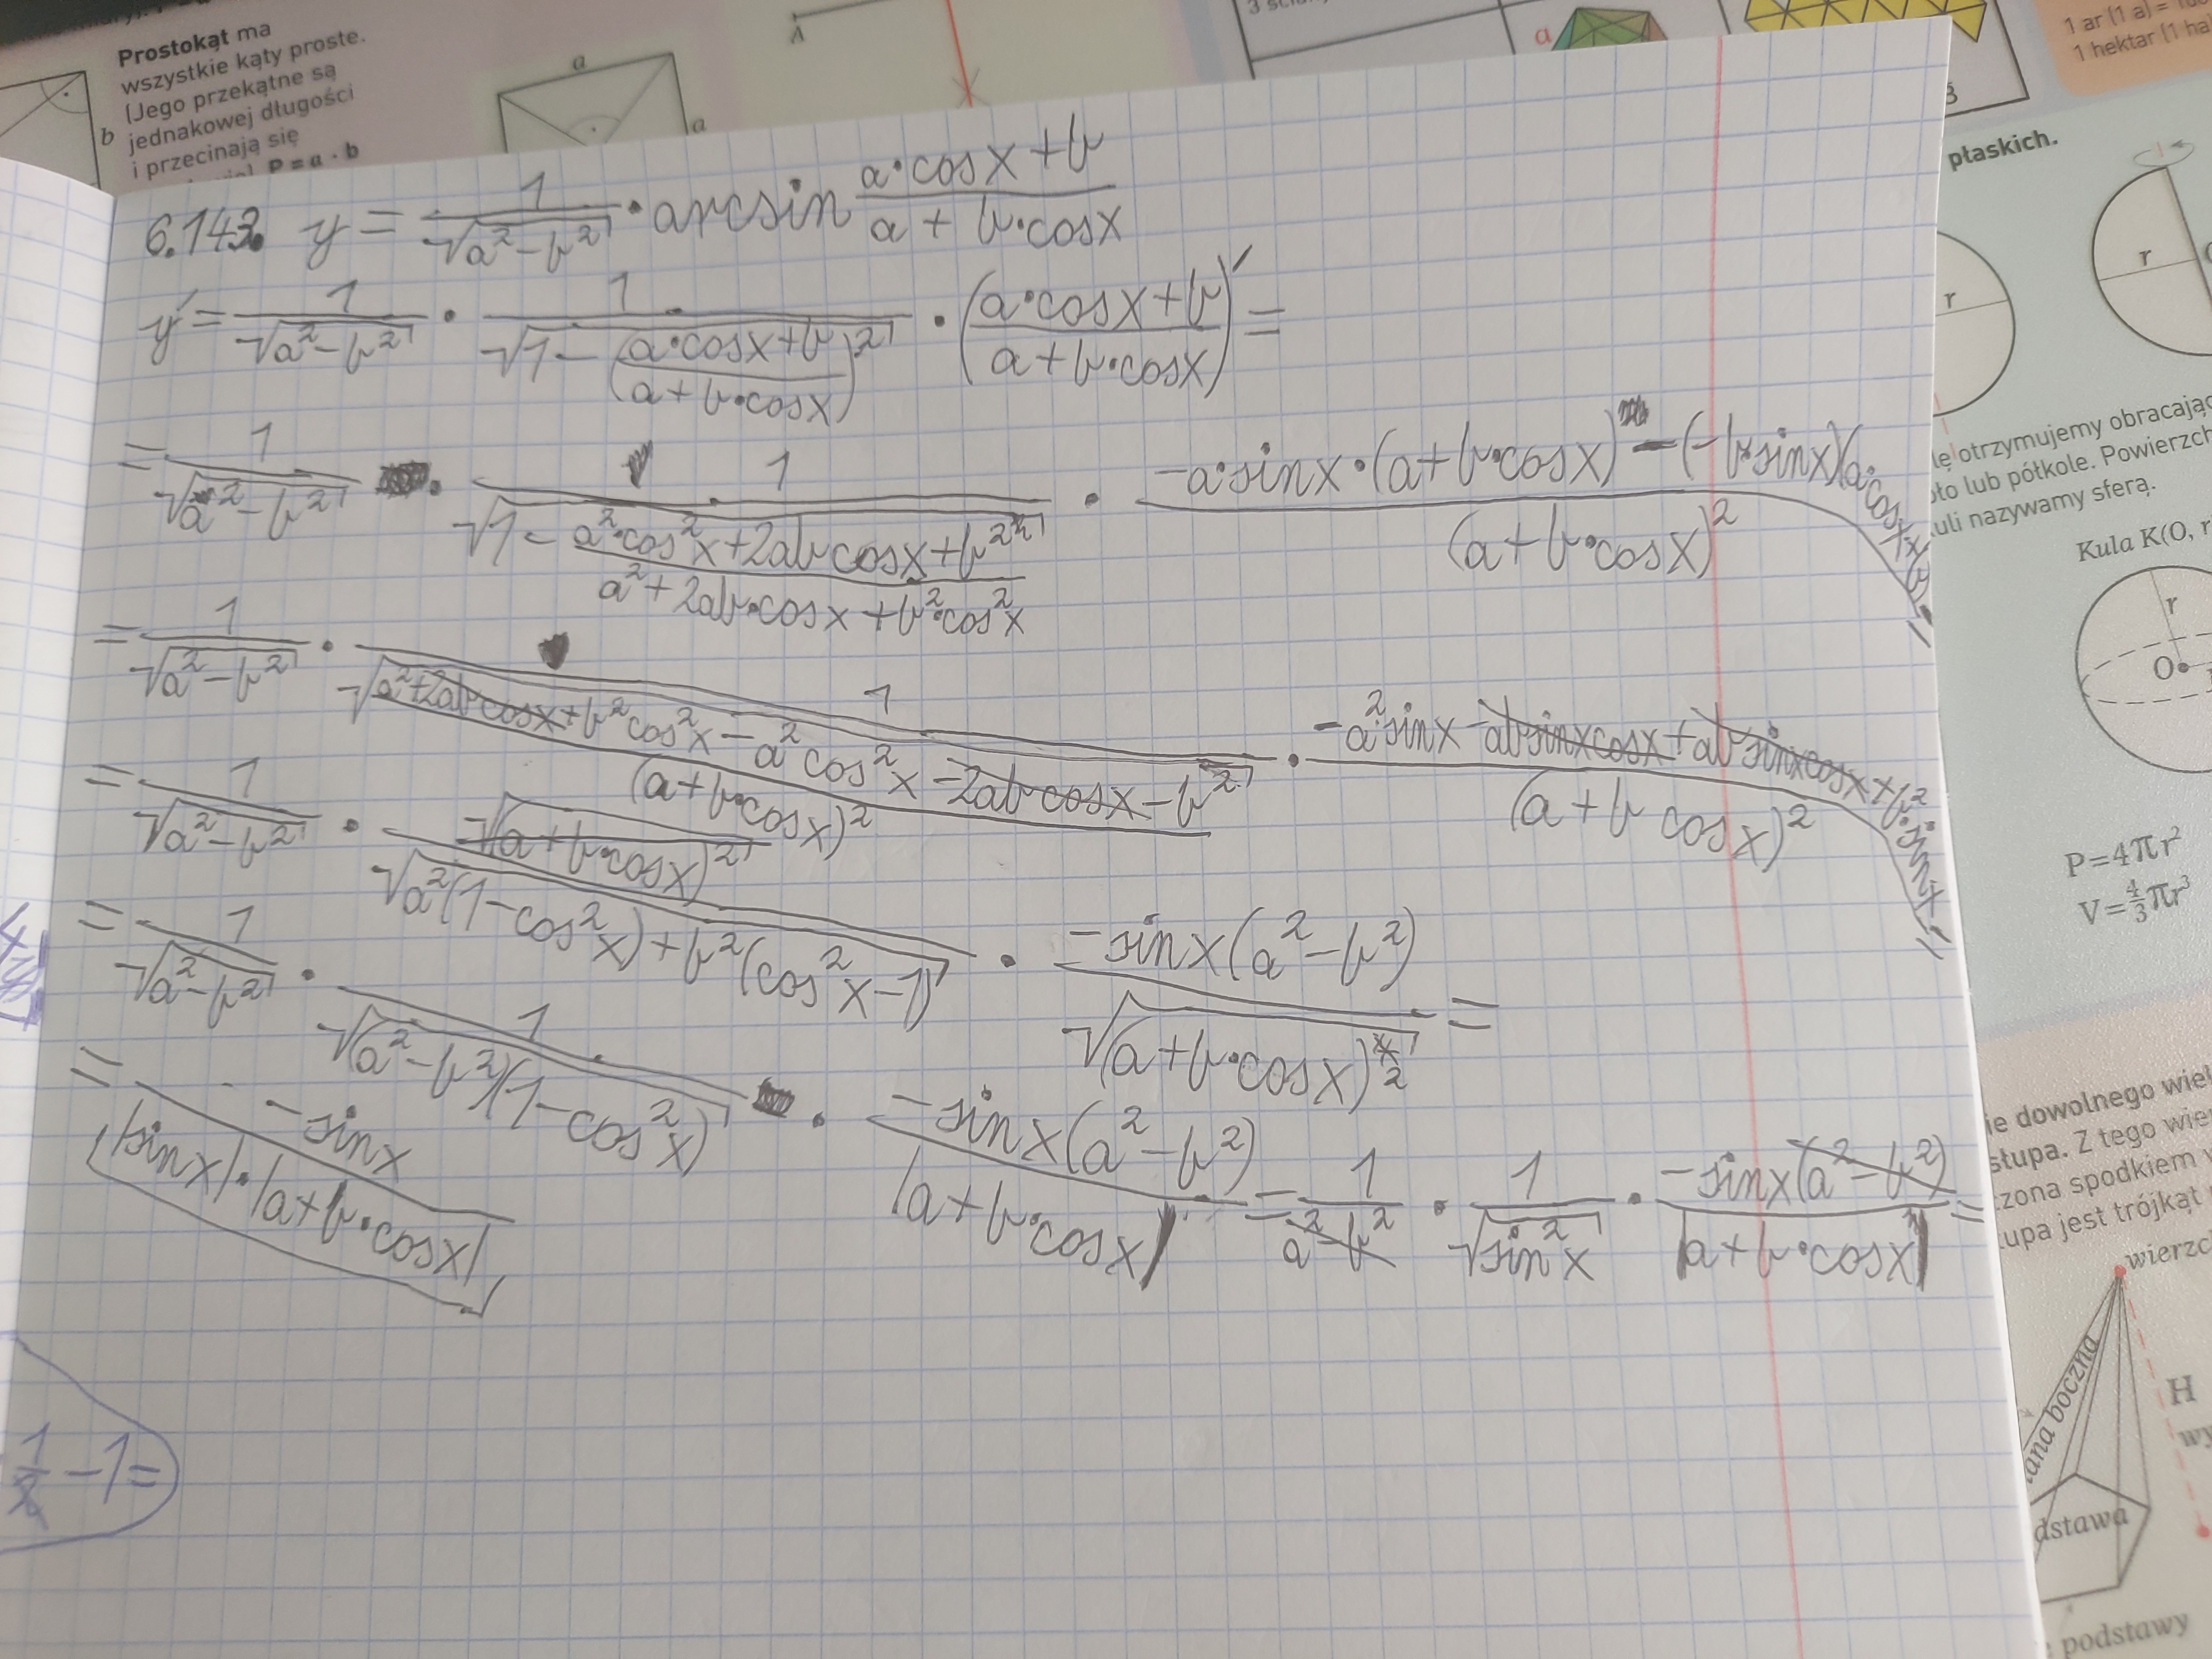 Prostokąt ma
wszystkie kąty proste.
(Jego przekątne są
jednakowej długości
i przecinają się
P = a · b
b
a
a
A
a
1 ar (1 a) =
1 hektar (1 ha
płaskich.
6.143. y = 1/√(a²-b²) · arcsin (a·cosx+b)/(a+b·cosx)
y' = 1/√(a²-b²) · 1/√(1-((a·cosx+b)/(a+b·cosx))²) · ((a·cosx+b)/(a+b·cosx))' =
= 1/√(a²-b²) · 1/√(1-(a²·cos²x+2abcosx+b²)/(a²+2ab·cosx+b²·cos²x)) · (-a·sinx·(a+b·cosx)-(-b·sinx)(a·cosx+b))/(a+b·cosx)² =
= 1/√(a²-b²) · 1/√((a²+2abcosx+b²cos²x-a²cos²x-2abcosx-b²)/(a+b·cosx)²) · (-a²·sinx-absinxcosx+absinxcosx+b²·sinx)/(a+b cosx)² =
= 1/√(a²-b²) · √(a+b·cosx)²/√(a²(1-cos²x)+b²(cos²x-1)) · -sinx(a²-b²)/√(a+b·cosx)^{4}_{2} =
= 1/√(a²-b²) · 1/√((a²-b²)(1-cos²x)) · -sinx(a²-b²)/|a+b·cosx| = 1/(a²-b²) · 1/√(sin²x) · -sinx(a²-b²)/|a+b·cosx| =
= -sinx/(|sinx|·|a+b·cosx|)
1/x -1=
r
r
lę otrzymujemy obracając
oło lub półkole. Powierzch
uli nazywamy sferą.
Kula K(O, r
r
O
P=4πr²
V=4/3πr³
ie dowolnego wiel
stupa. Z tego wie
zona spodkiem
upa jest trójkąt
wierzc
ana boczna
H
wy
dstawa
podstawy